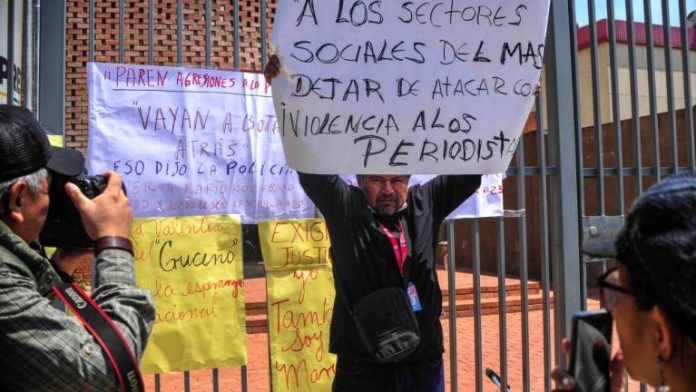 "A LOS SECTORES
SOCIALES DEL MAS
DEJAR DE ATACAR CO
¡VIOLENCIA A LOS
PERIODIST
¡PAREN AGRESIONES A LA P
"VAYAN A BOTA
ATRÁS"
ESO DIJO LA POLICÍA
Valentía
del
"Guceno"
la esperanza
EXIG
JUSTICIA
yo
Tamb
Soy
Mar